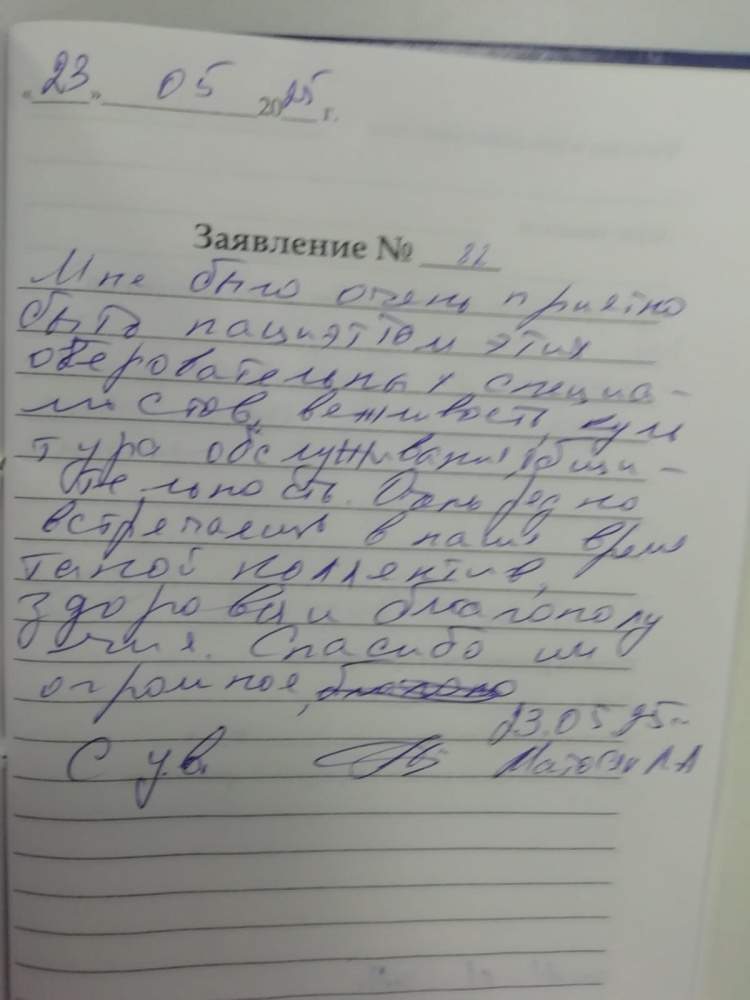 «23» 05 2025 г.
Заявление № 22
Мне было очень приятно
быть пациэтом этих
очеровательных специа-
листов, вежливость, куль
тура обслуживания, общи-
тельность. Очень редно
встречались в наше время
такой коллектив,
здоровья и благополу
чия. Спасибо им
огромное,
23.05.25г.
С ув.